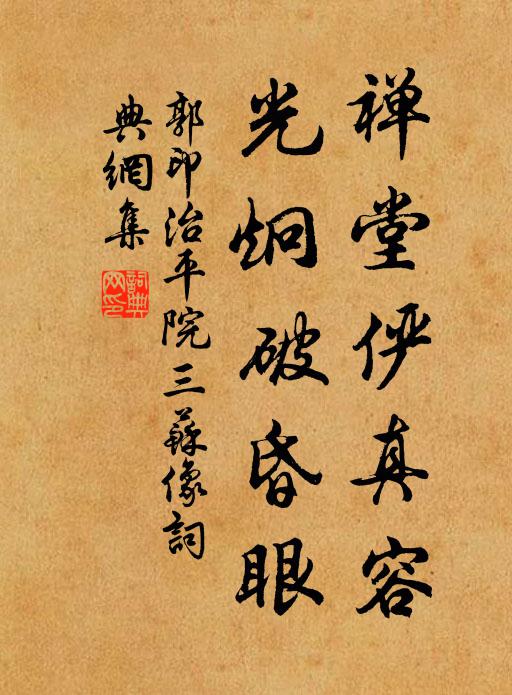 禅堂俨真容
光炯破昏眼
郭印治平院三蘇像詞
典網集
詞典網印